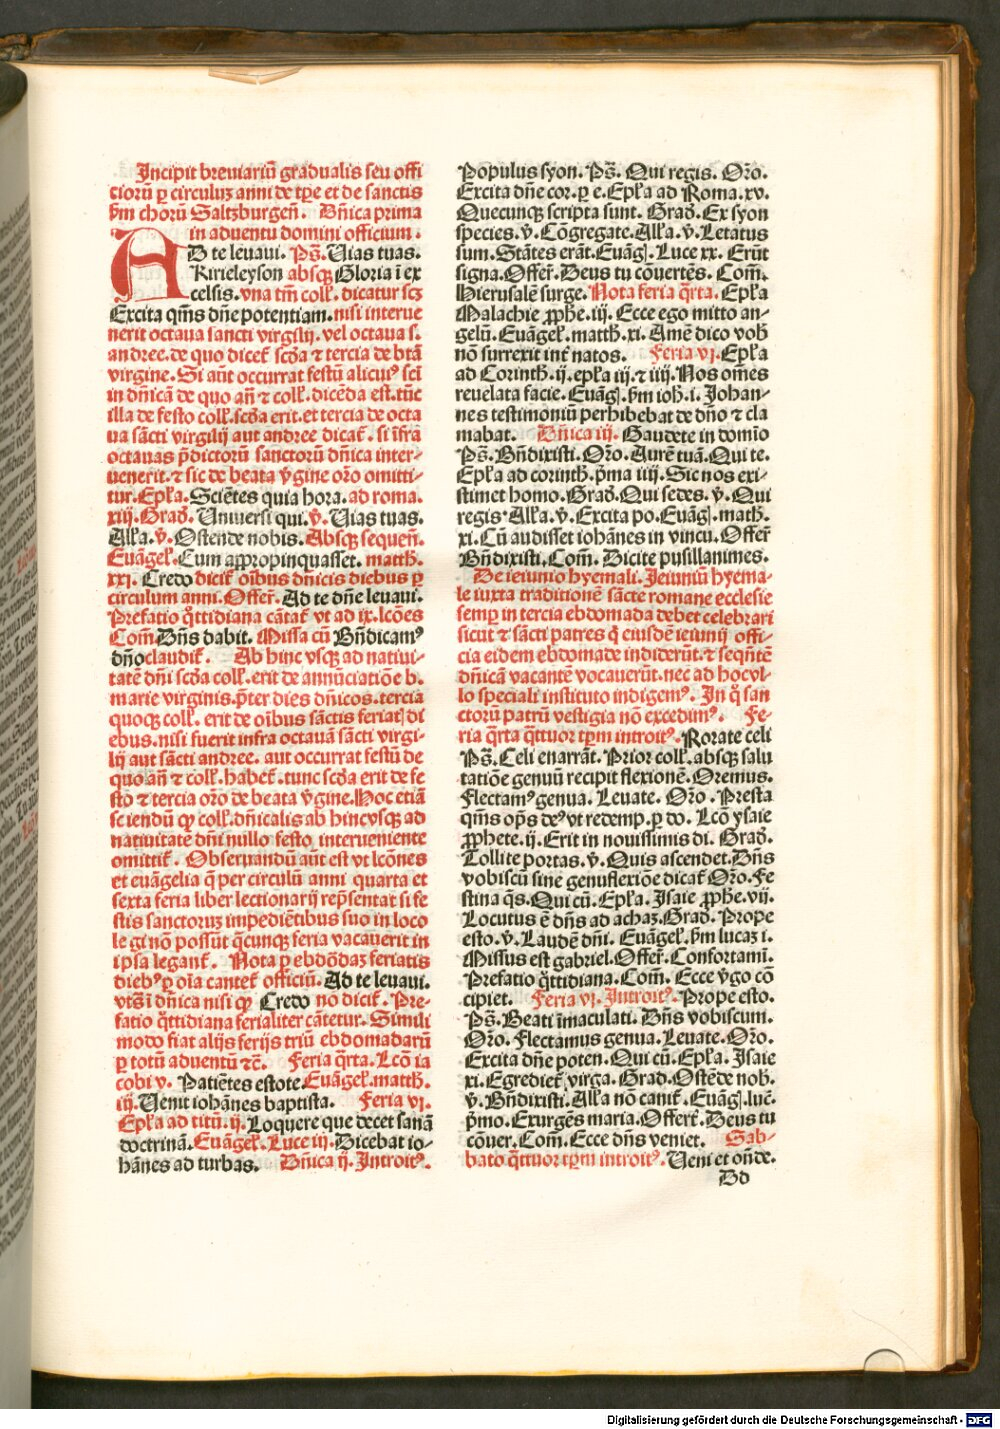 Incipit breviariū gradualis seu offi
cioꝝ ꝑ circuluꝫ anni de tꝑe et de sanctis
ẜm chorū Saltzburgeñ. Dñica prima
in adventu domini officium.
AD te levavi. Ps̄. Vias tuas.
Kirieleyson absqꝫ Gloria ī ex
celsis. vna tm̄ coll̕. dicatur scꝫ
Excita qm̄s dñe potentiam. nisi interue
nerit octaua sancti virgilij. vel octaua s.
andree. de quo dicet̕ scd̄a ⁊ tercia de btā
virgine. Si aūt occurrat festū alicui⁹ sc̄i
in dñicā de quo añ ⁊ coll̕. dicēda est. tūc
illa de festo coll̕. scd̄a erit. et tercia de octa
ua sācti virgilij aut andree dicat̕. si īfra
octauas p̄dictorū sanctorū dñica inter-
uenerit. ⁊ sic de beata v̄gine oro omitti-
tur. Epl̄a. Sciētes quia hora. ad roma.
xiij. Grad̕. Uniuersi qui. v̄. Vias tuas.
All̄a. v̄. Ostende nobis. Absqꝫ sequeñ.
Euāgel̕. Cum appropinquasset. matth.
xxi. Credo dicit̕ oībus dñicis diebus ꝑ
circulum anni. Offer̕. Ad te dñe leuaui.
Prefatio q̄ttidiana cātat̕ vt ad ix. lcōnes
Com̄. Dñs dabit. Missa cū Bn̄dicam⁹
dñoclaudit̕. Ab hinc vsqꝫ ad natiui-
tatē dñi scd̄a coll̕. erit de annūciatiōe b.
marie virginis. p̄ter dies dñicos. tercia
quoqꝫ coll̕. erit de oībus sāctis feriatꝫ di
ebus. nisi fuerit infra octauā sācti virgi-
lij aut sācti andree. aut occurrat festū de
quo añ ⁊ coll̕. habet̕. tunc scd̄a erit de fe
sto ⁊ tercia oro de beata v̄gine. Hoc etiā
sciendū ꝙ coll̕. dñicalis ab hincvsqꝫ ad
natiuitatē dñi nullo festo interueniente
omittit̕. Obseruandū aūt est vt lcōnes
et euāgelia q̄ per circulū anni quarta et
sexta feria liber lectionarij rep̄sentat̕ si fe
stis sanctoruꝫ impediētibus suo in loco
legi nō possūt q̄cunqꝫ feria vacauerit in
ipsa legant̕. Nota ꝑ ebdōdaꝫ feriatis
dieb⁹ ꝑ oīa cantet̕ officiū. Ad te leuaui.
vts̄ ī dñica nisi ꝙ Credo no dicit̕. Pre-
fatio q̄ttidiana ferialiter cātetur. Simili
modo fiat alijs ferijs triū ebdomadarū
ꝑ totū aduentū ⁊c̄. Feria q̄rta. Lcō ia
cobi v. Patiētes estote. Euāgel̕. matth.
iij. Uenit iohānes baptista. Feria vi.
Epl̄a ad titū. ij. Loquere que decet sanā
doctrinā. Euāgel̕. Luce iij. Dicebat io-
hānes ad turbas. Dñica ij. Introit⁹.
Populus syon. Ps̄. Qui regis. Oro.
Excita dñe cor. ꝑ e. Epl̄a ad Roma. xv.
Quecunqꝫ scripta sunt. Grad̕. Ex syon
species. v̄. Cōgregate. All̄a. v̄. Letatus
sum. Stātes erāt. Euāgꝫ. Luce xx. Erūt
signa. Offer̕. Deus tu cōuertēs. Com̄.
Hierusalē surge. Nota feria q̄rta. Epl̄a
Malachie ꝓphe. iij. Ecce ego mitto an-
gelū. Euāgel̕. matth. xi. Amē dico vob̄
nō surrexit int̕ natos. Feria vi. Epl̄a
ad Corinth. ij. epl̄a iij. ⁊ iiij. Nos om̄es
reuelata facie. Euāgꝫ. ẜm ioh. i. Johan-
nes testimoniū perhibebat de dño ⁊ cla
mabat. Dñica iij. Gaudete in domīo
Ps̄. Bn̄dixisti. Oro. Aurē tuā. Qui te.
Epl̄a ad corinth. p̄ma iiij. Sic nos exi-
stimet homo. Grad̕. Qui sedes. v̄. Qui
regis. All̄a. v̄. Excita po. Euāgꝫ. math.
xi. Cū audisset iohānes in vincu. Offer̕
Bn̄dixisti. Com̄. Dicite pusillanimes.
De ieiunio hyemali. Jeiuniū hyema-
le iuxta traditionē sācte romane ecclesie
semꝑ in tercia ebdomada debet celebrari
sicut ⁊ sācti patres q̄ eiusdē ieiunij offi-
cia eidem ebdomade indiderūt. ⁊ seqn̄tē
dñicā vacantē vocauerūt. nec ad hocvl-
lo speciali instituto indigem⁹. In q̊ san
ctorū patrū vestigia nō excedim⁹. Fe-
ria q̄rta q̄ttuor tꝑm introit⁹. Rorate celi
Ps̄. Celi enarrāt. Prior coll̕. absqꝫ salu
tatiōe genuū recipit flexionē. Oremus.
Flectam⁹ genua. Leuate. Oro. Presta
qm̄s oꝑs de⁹ vt redemp. ꝑ do. Lcō ysaie
ꝓphete. ij. Erit in nouissimis di. Grad̕.
Tollite portas. v̄. Quis ascendet. Dñs
vobiscū sine genuflexiōe dicat̕ Oro. Fe
stina q̄s. Qui cū. Epl̄a. Isaie ꝓphe. vij.
Locutus ē dñs ad achaz. Grad̕. Prope
esto. v̄. Laudē dñi. Euāgel̕. ẜm lucaꝫ i.
Missus est gabriel. Offer̕. Confortamī.
Prefatio q̄ttidiana. Com̄. Ecce v̄go cō
cipiet. Feria vi. Introit⁹. Prope esto.
Ps̄. Beati īmaculati. Dñs vobiscum.
Oro. Flectamus genua. Leuate. Oro.
Excita dñe poten. Qui cū. Epl̄a. Isaie
xi. Egrediet̕ virga. Grad. Ostēde nob̄.
v̄. Bn̄dixisti. All̄a nō canit̕. Euāgꝫ. luc̄.
p̄mo. Exurgēs maria. Offert̕. Deus tu
cōuer. Com̄. Ecce dñs veniet. Sab-
bato q̄ttuor tꝑm introit⁹. Ueni et on̄de.
Dd
Digitalisierung gefördert durch die Deutsche Forschungsgemeinschaft - DFG